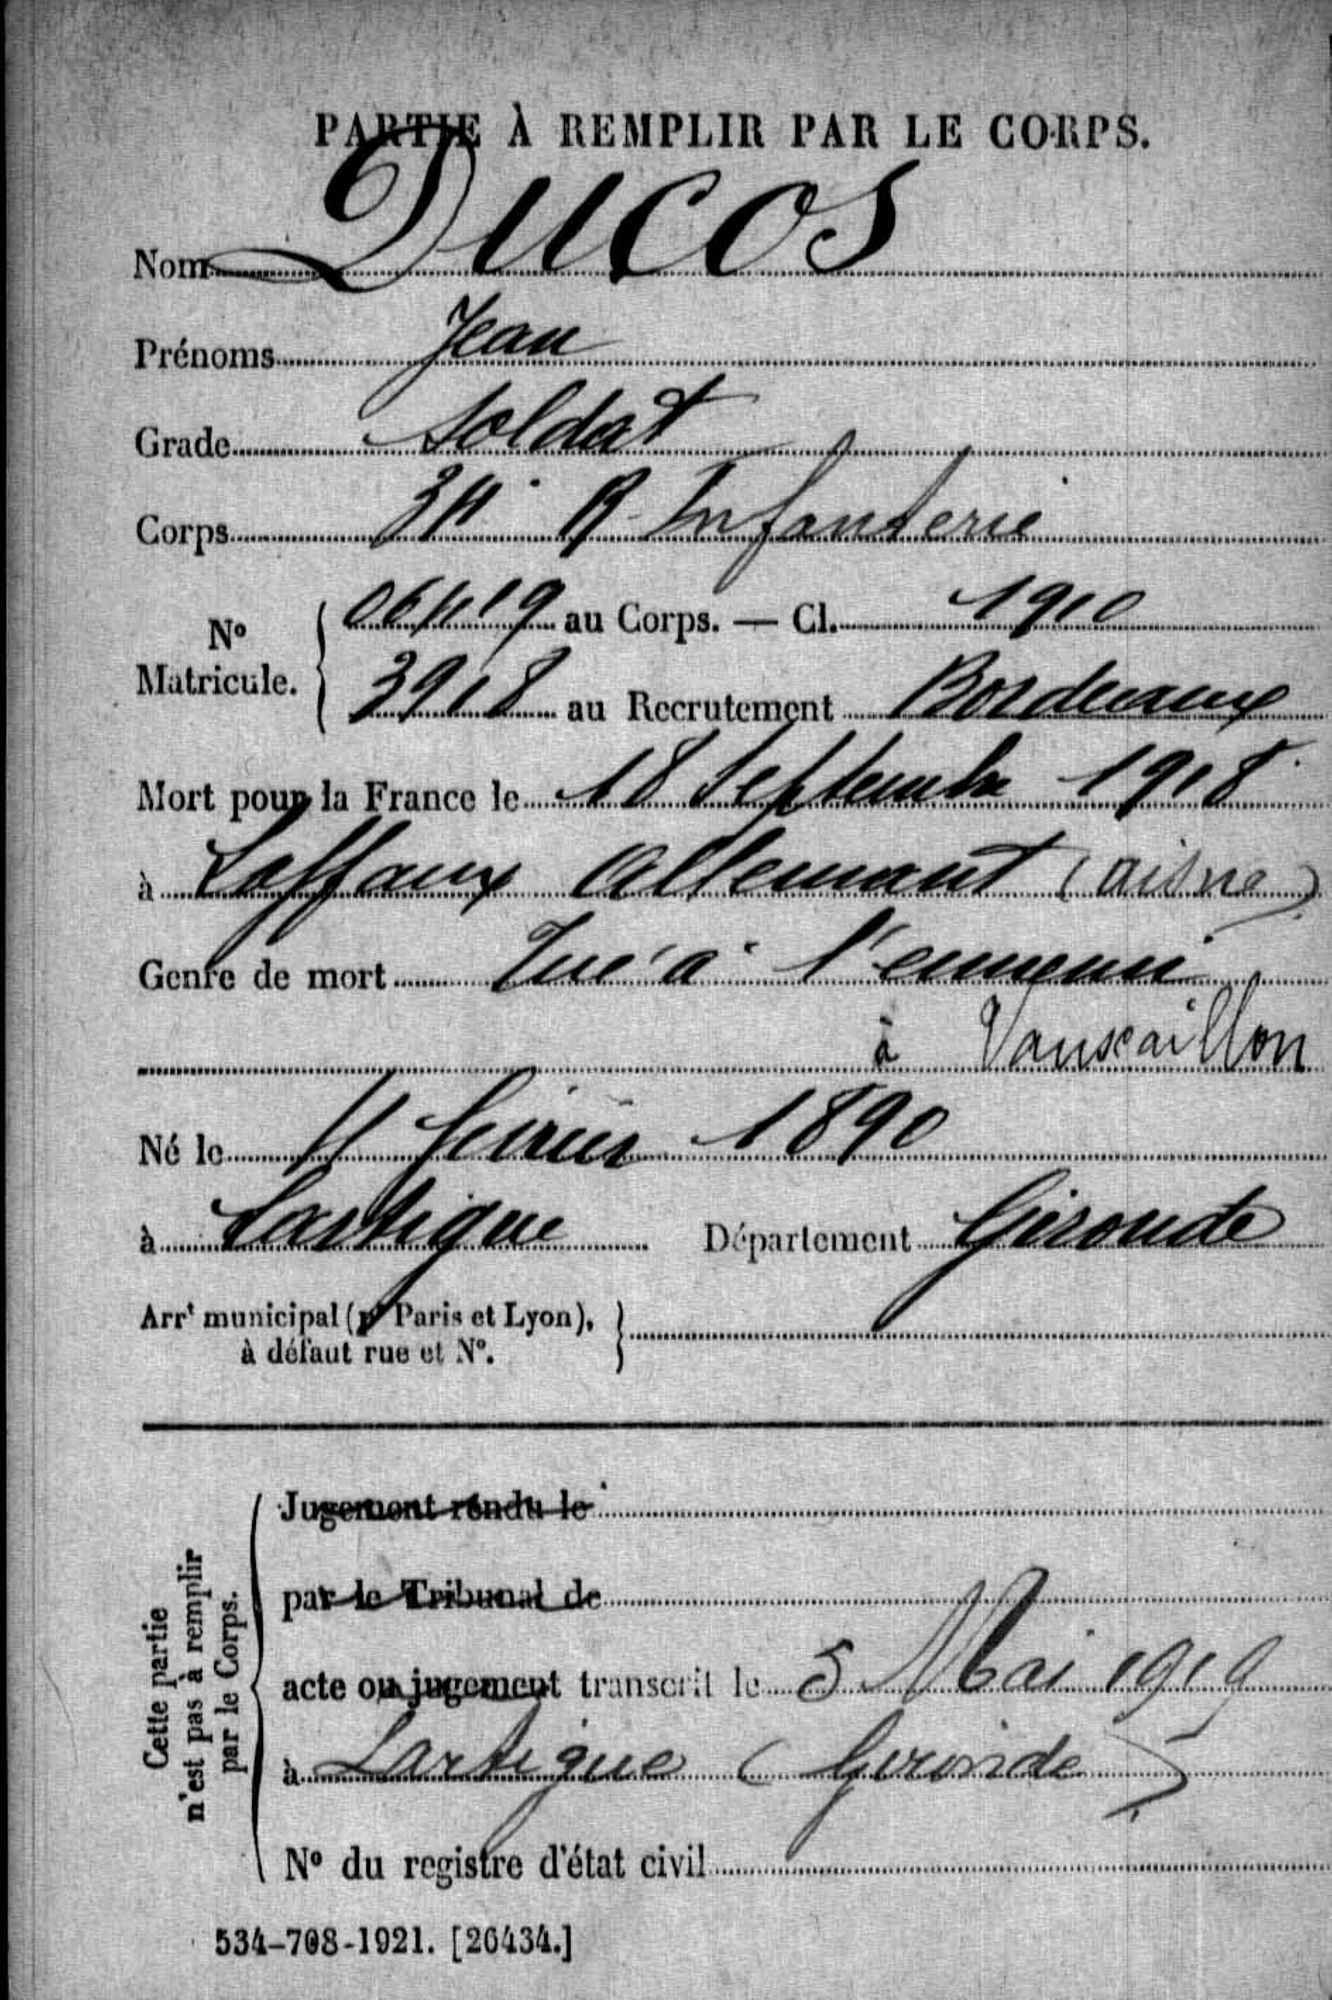 PARTIE À REMPLIR PAR LE CORPS.
Nom Ducos
Prénoms Jean
Grade Soldat
Corps 34e R. Infanterie
No Matricule. { 06419 au Corps. — Cl. 1910
3918 au Recrutement Bordeaux
Mort pour la France le 18 Septembre 1918
à Laffaux Allemant (Aisne)
Genre de mort Tué à l'ennemi
à Vauxaillon
Né le 11 février 1890
à Lartigue Département Gironde
Arrt municipal (pr Paris et Lyon), à défaut rue et No. }
Cette partie n'est pas à remplir par le Corps.
Jugement rendu le
par le Tribunal de
acte ou jugement transcrit le 5 Mai 1919
à Lartigue (Gironde)
No du registre d'état civil
534-708-1921. [26434.]